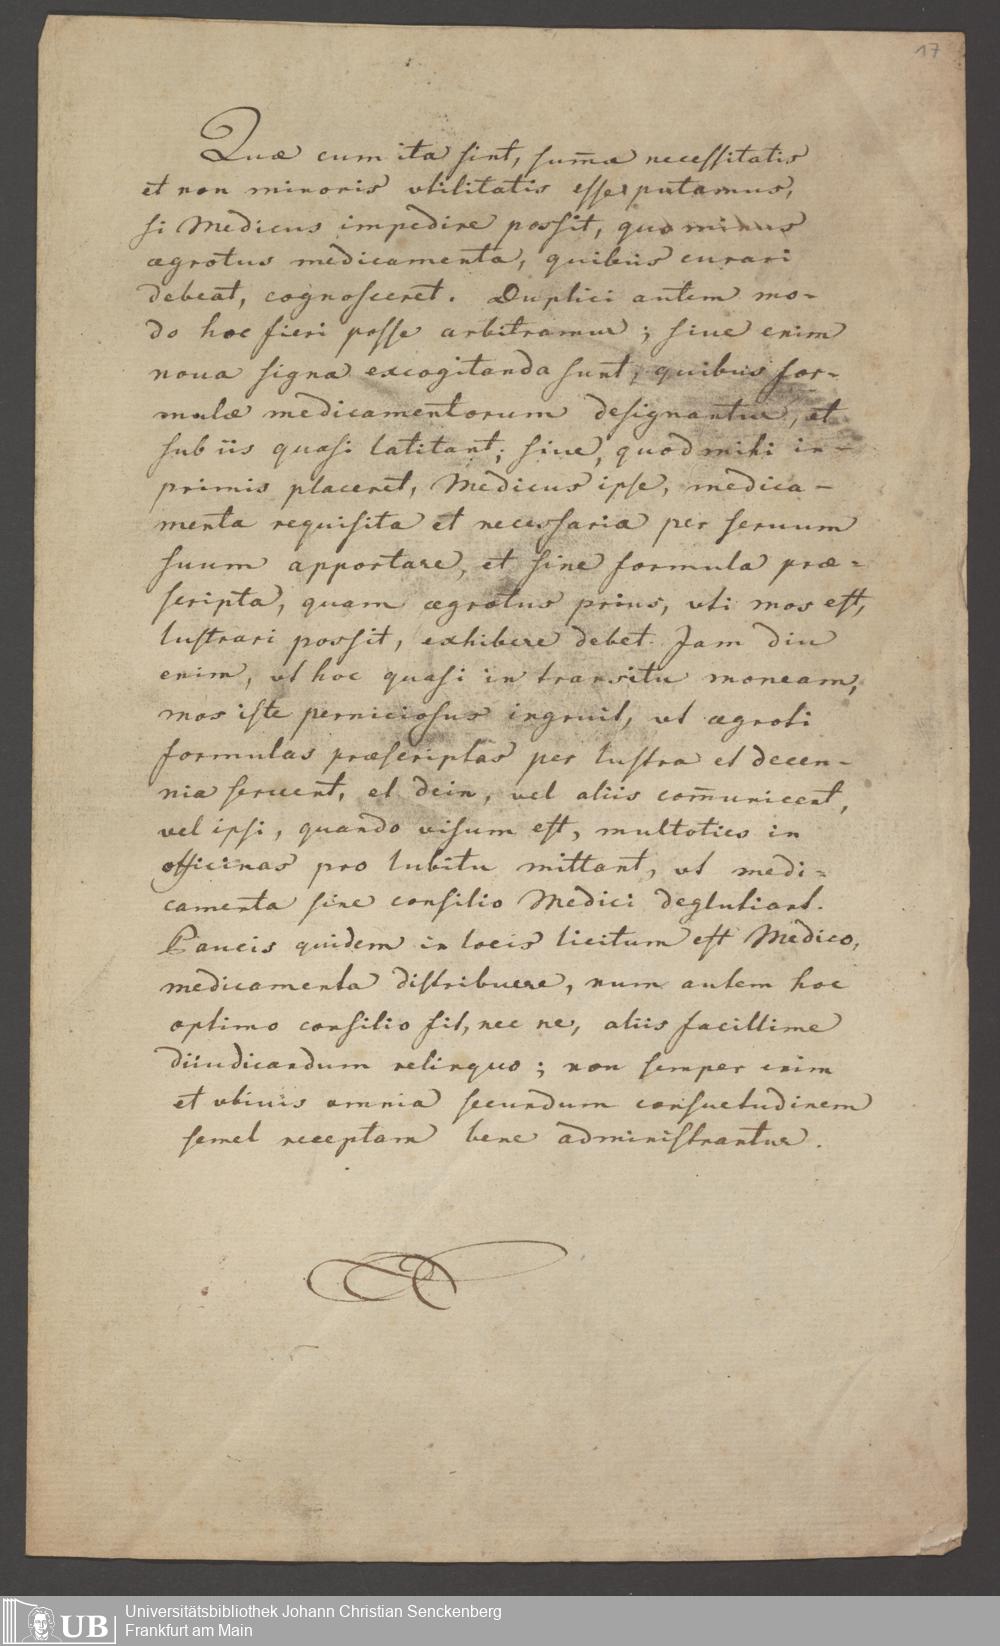 17
Quæ cum ita sint, sum̄a necessitatis
et non minoris vtilitatis esse putamus,
si Medicus impedire possit, quo minus
ægrotus medicamenta, quibus curari
debeat, cognosceret. Duplici autem mo-
do hoc fieri posse arbitramur; siue enim
noua signa excogitanda sunt, quibus for-
mulæ medicamentorum designantur, et
sub iis quasi latitant; siue, quod mihi in-
primis placeret, Medicus ipse, medica-
menta requisita et necessaria per seruum
suum apportare, et sine formula præ-
scripta, quam ægrotus prius, vti mos est,
lustrari possit, exhibere debet. Jam diu
enim, vt hoc quasi in transitu moneam,
mos iste perniciosus ingruit, vt ægroti
formulas præscriptas per lustra et decen-
nia seruent, et dein, vel aliis com̄unicent,
vel ipsi, quando visum est, multoties in
officinas pro lubitu mittant, vt medi-
camenta sine consilio Medici deglutiant.
Paucis quidem in locis licitum est Medico,
medicamenta distribuere, num autem hoc
optimo consilio fit, nec ne, aliis facillime
diiudicandum relinquo; non semper enim
et vbiuis omnia secundum consuetudinem
semel receptam bene administrantur.
UB
Universitätsbibliothek Johann Christian Senckenberg
Frankfurt am Main